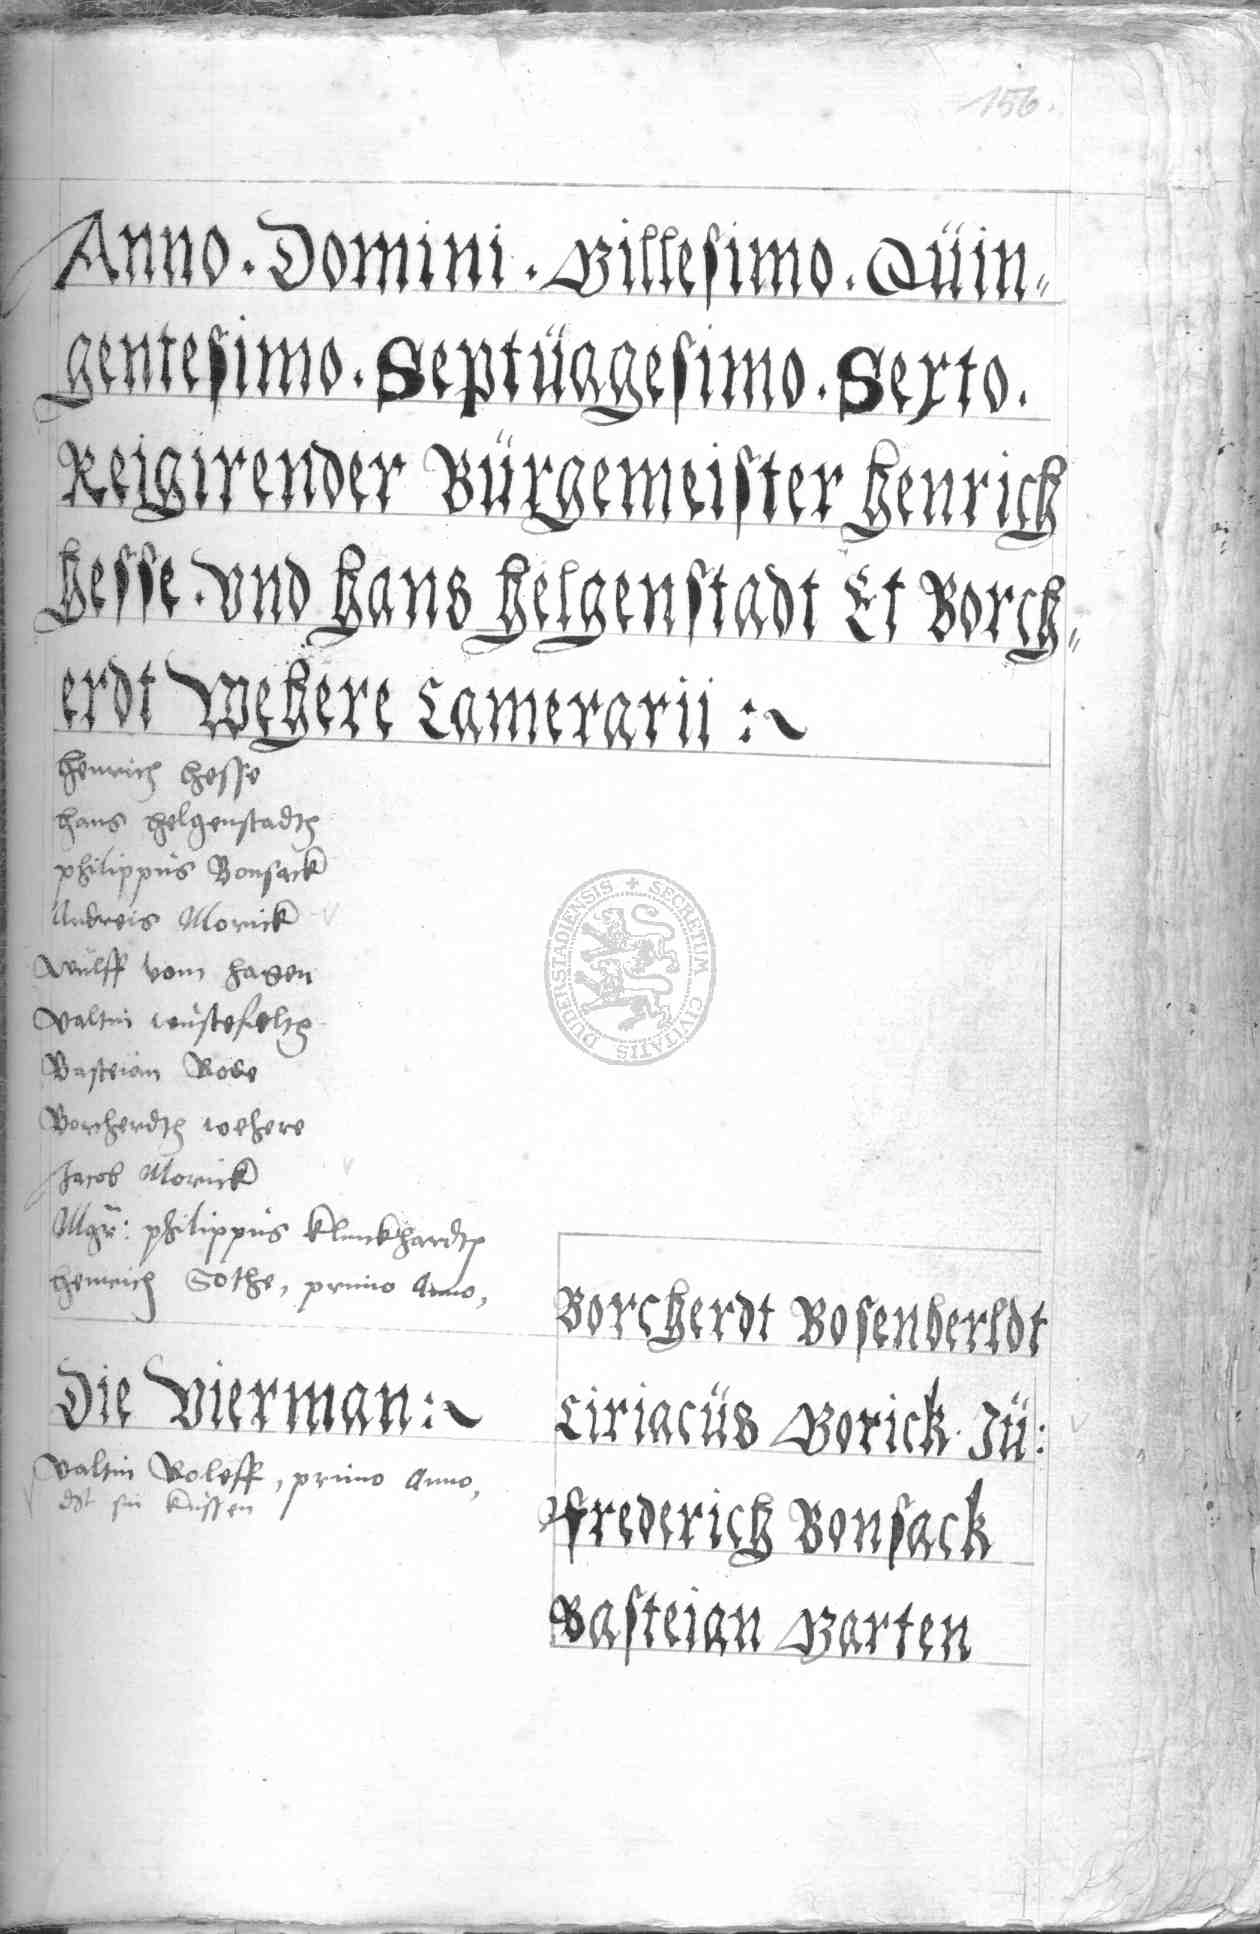 156.
Anno . Domini . Millesimo . Quin⸗
gentesimo . Septüagesimo . Sexto .
Reigirender Bürgemeister Henrich
Hesse . vnd Hans Helgenstadt Et Borch⸗
erdt Wehere Camerarii :~
Henrich Hesse
Hans Helgenstadth
philippüs Bonsack
Andreis Morick
Wülff vom Hagen
Valtin wüstefelth
Basteian Rode
Borcherdth wehere
Jacob Morick
Mgr: philippüs Klinckhardth
Henrich Sothe, primo Anno,
Die Vierman :~
Valtin Roleff, primo Anno,
Küssen
Borcherdt Bosenberldt
Ciriacüs Morick Jü:
Frederich Bonsack
Basteian Marten
DUDERSTADIENSIS + SECRETUM CIVITATIS